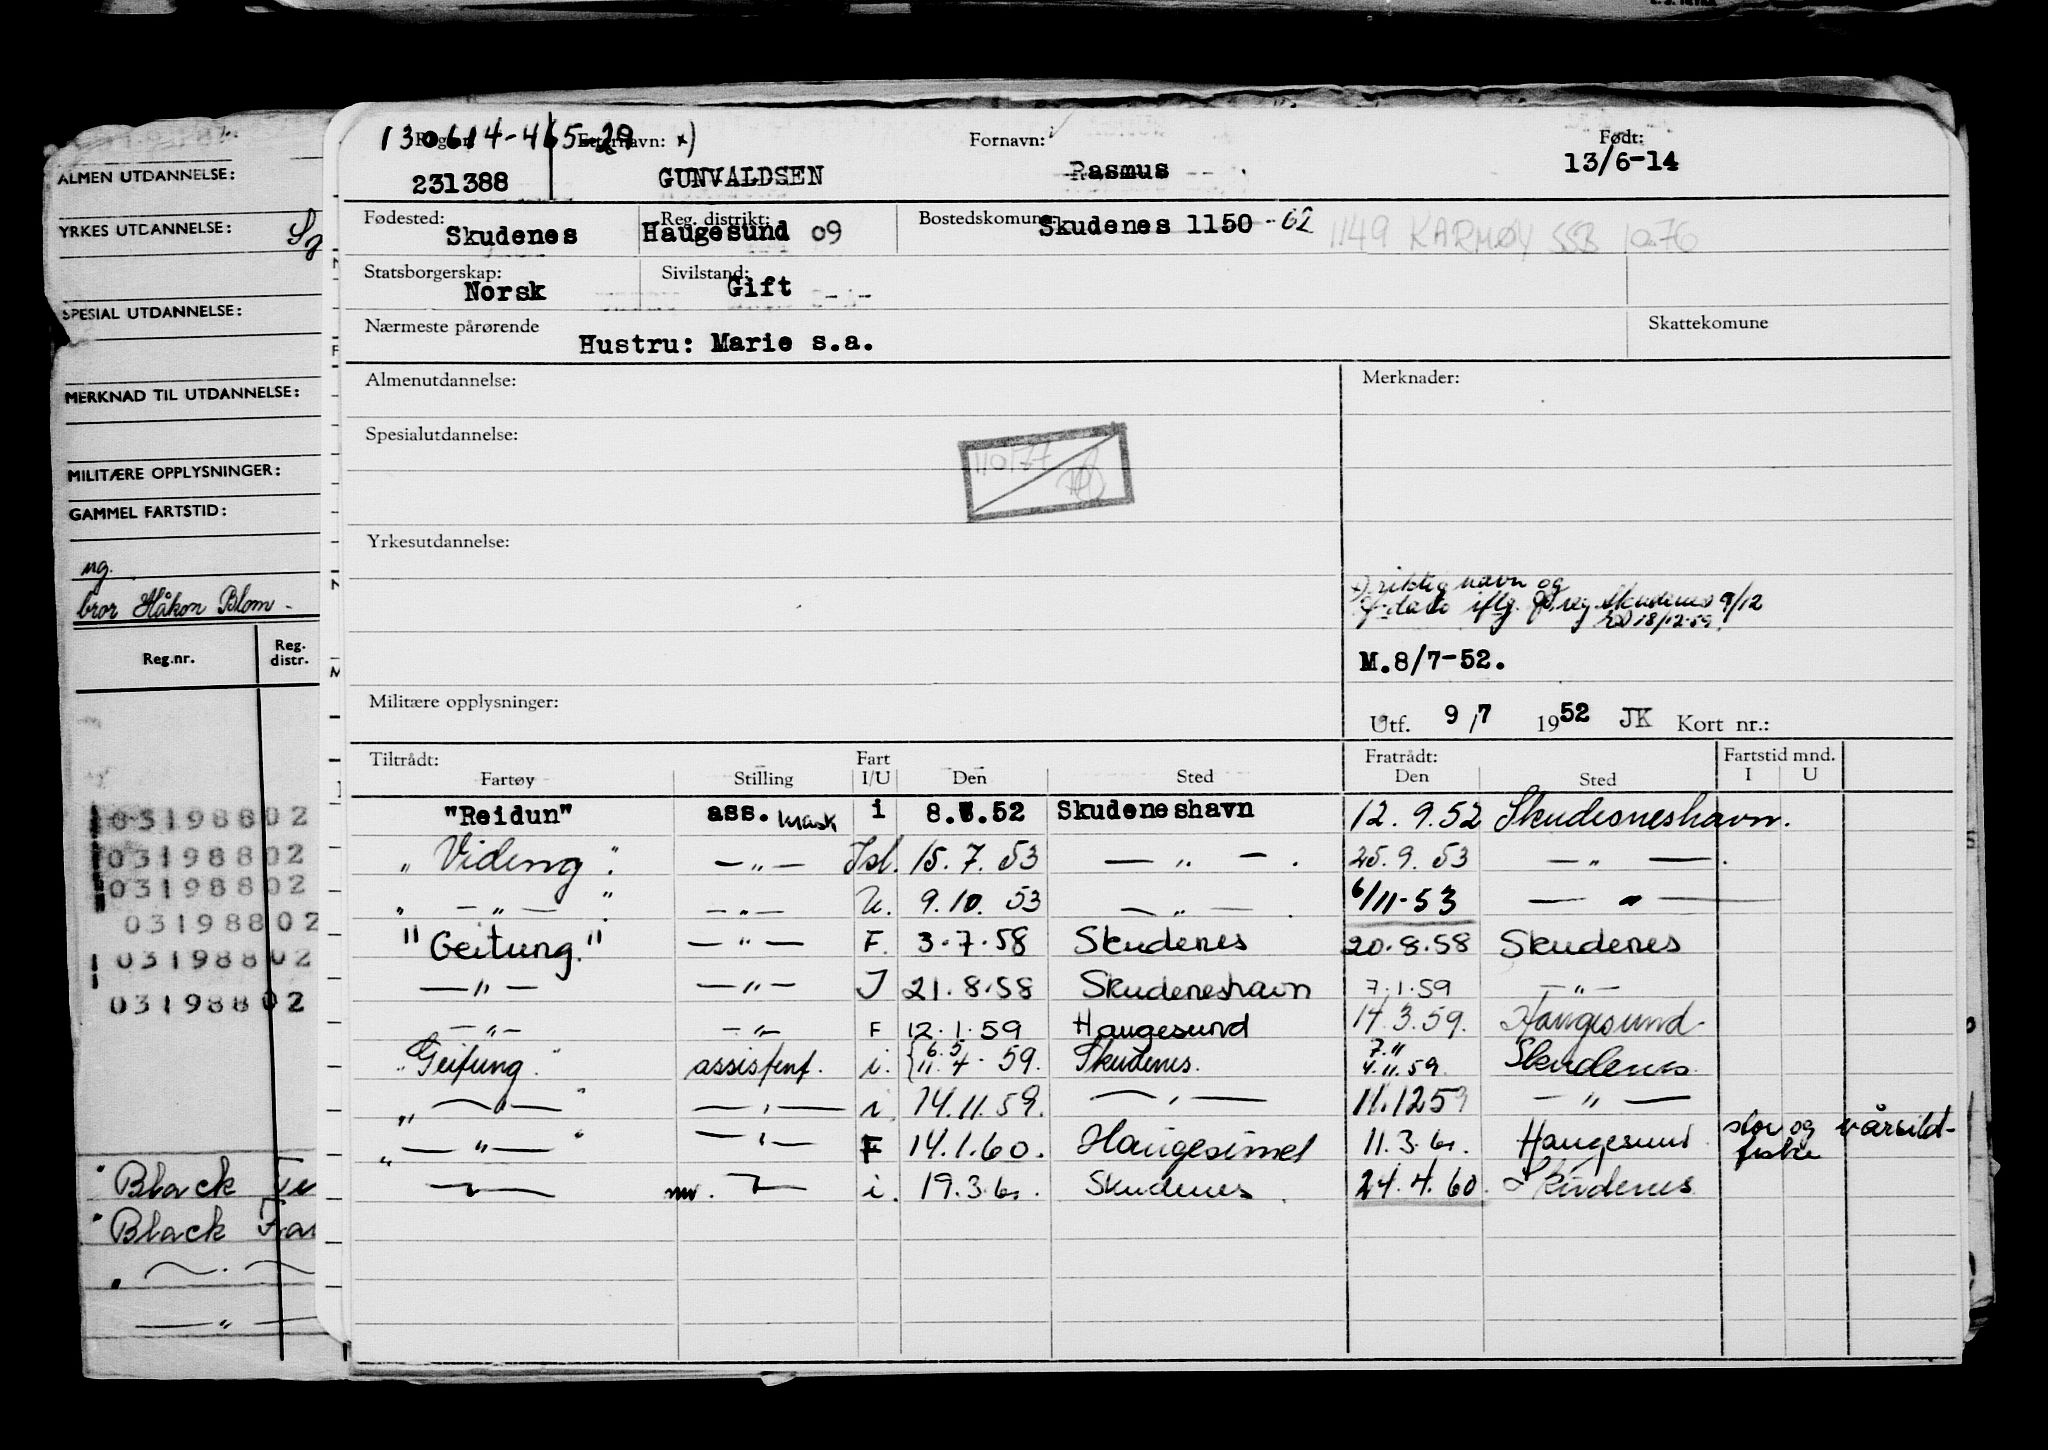 ALMEN UTDANNELSE:
YRKES UTDANNELSE:
SPESIAL UTDANNELSE:
MERKNAD TIL UTDANNELSE:
MILITÆRE OPPLYSNINGER:
GAMMEL FARTSTID:
ng.
bror Håkon Blom -
Reg.nr. Reg. distr.
03198802
03198802
03198802
03198802
03198802
03198802
" Black
" Black
— " —
130614-465-29 Etternavn: x) Fornavn: Født:
231388 GUNVALDSEN Rasmus 13/6-14
Fødested: Reg. distrikt: Bostedskomune:
Skudenes Haugesund 09 Skudenes 1150 -62 1149 KARMØY SSB 10.76
Statsborgerskap: Sivilstand:
Norsk Gift
Nærmeste pårørende Skattekomune
Hustru: Marie s.a.
Almenutdannelse: Merknader:
Spesialutdannelse:
110177
Yrkesutdannelse:
x) riktig navn og
f. dato iflg. reg. Skudenes 9/12
18/12-59.
M.8/7-52.
Militære opplysninger:
Utf. 9/7 1952 JK Kort nr.:
Tiltrådt: Fart Fratrådt: Fartstid mnd.
Fartøy Stilling I/U Den Sted Den Sted I U
"Reidun" ass. mask i 8.7.52 Skudeneshavn 12.9.52 Skudesneshavn.
" Videng " — " — Isl. 15.7.53 — " — . 25.9.53 — " — .
" — " — " — " — U. 9.10.53 — " — . 6/11-53 — " —
"Geitung." — " — F. 3.7.58 Skudenes 20.8.58 Skudenes
— " — — " — I 21.8.58 Skudeneshavn 7.1.59 — " —
— " — — " — F 12.1.59 Haugesund 14.3.59. Haugesund.
"Geitung." assistent. i. { 6.5 11.4.59. Skudenes. 7." 4.11.59. Skudenes.
" — " — " — " — i. 14.11.59. — " — 11.1259 — " —
" — " — " — " — F 14.1.60. Haugesund 11.3.60. Haugesund stor og vårsild-
fiske
— " — — " — i. 19.3.60. Skudenes. 24.4.60. Skudenes